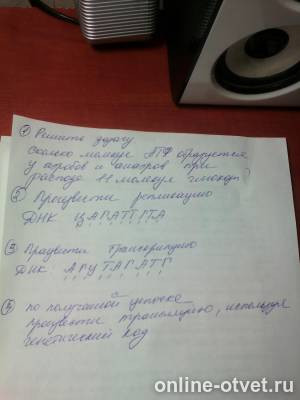 ① Решите задачу
Сколько молекул АТФ образуется
у аэробов и анаэробов при
распаде 11 молекул глюкозы?
② Произвести репликацию
ДНК ЦАГАТТГТА
③ Произвести транскрипцию
ДНК: АГЦ ТАГАТГ
④ по полученной цепочке
произвести трансляцию, используя
генетический код
online-otvet.ru